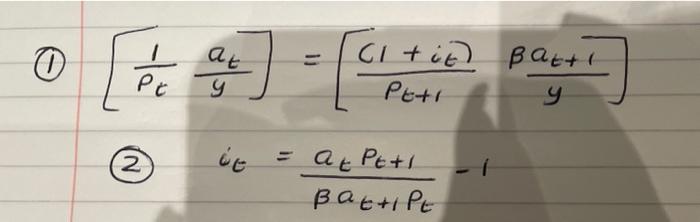 ① [ 1/Pt at/y ] = [ (1 + it)/Pt+1 βat+1/y ]
② it = at Pt+1 / βat+1 Pt - 1